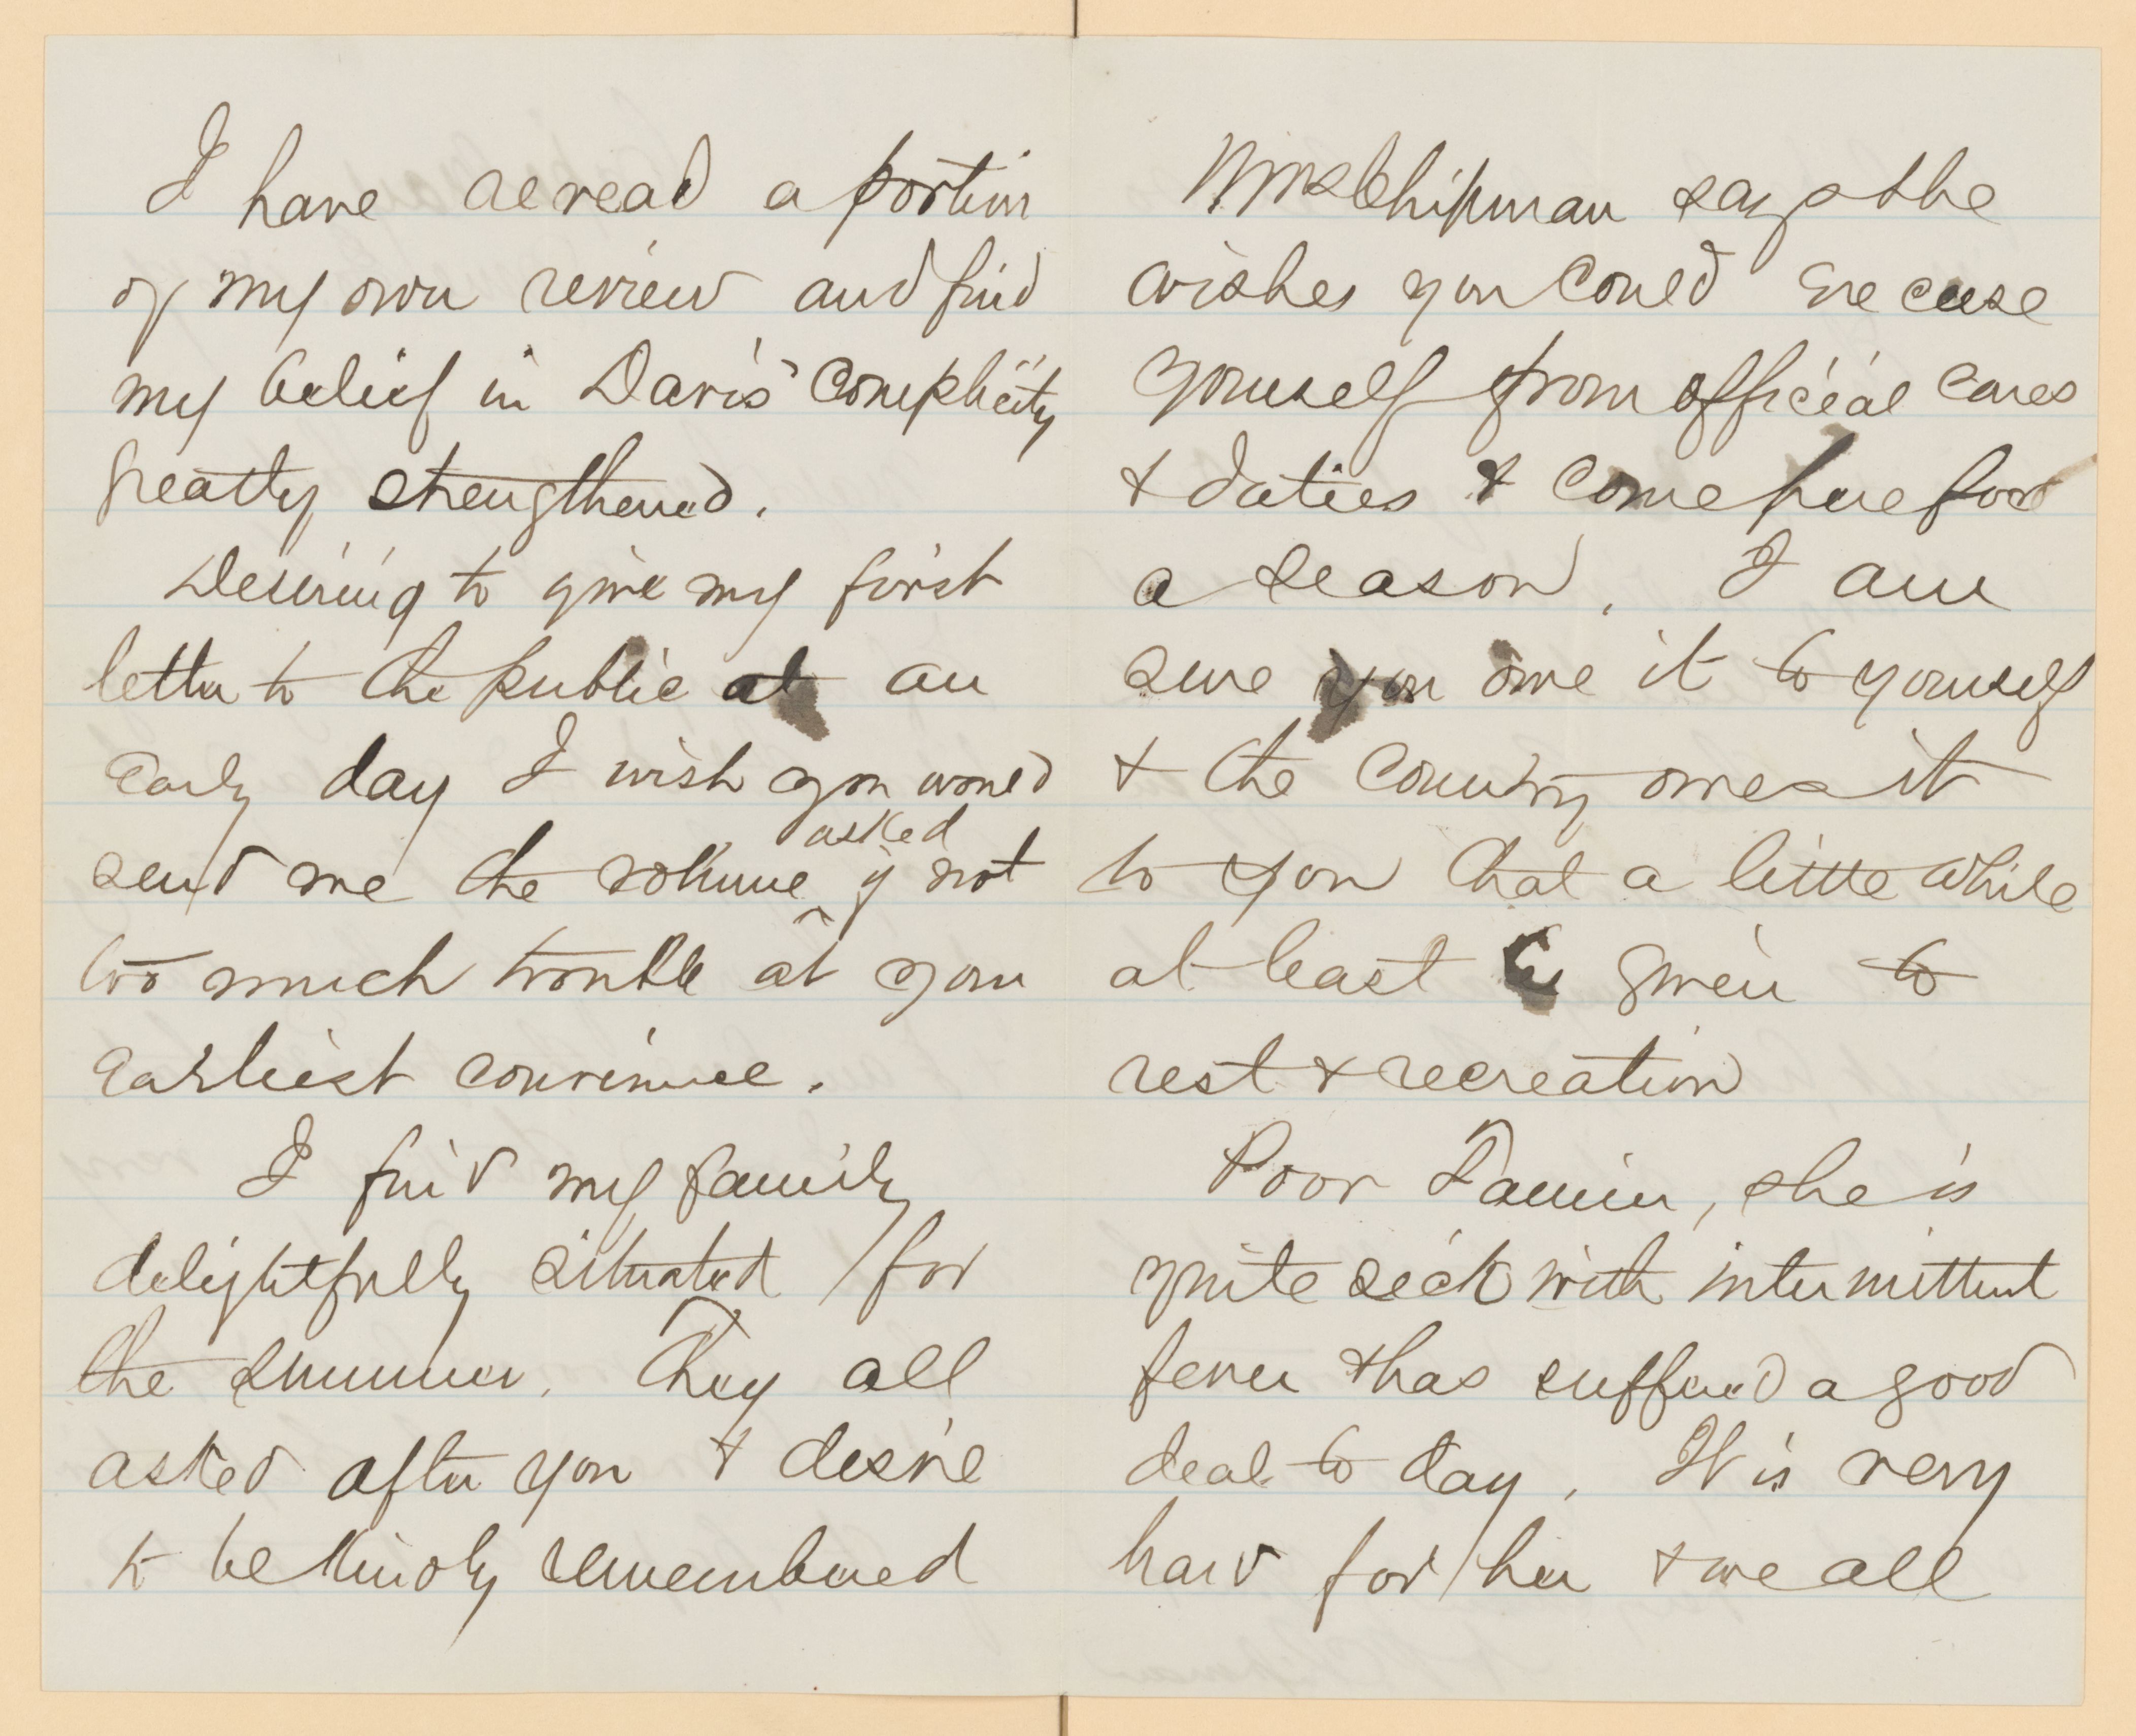 I have reread a portion
of my own review and find
my belief in Davis' complicity
greatly strengthened.
Desiring to give my first
letter to the public at an
early day I wish you would
asked
send me the volume ^ if not
too much trouble at your
earliest convinence.
I find my family
delightfully situated for
the summer. They all
asked after you & desire
to be kindly remembered
Mrs Chipman says she
wishes you could excuse
yourself from official cares
& duties & come here for
a season. I am
sure you owe it to yourself
& the country owes it
to you that a little while
at least be given to
rest & recreation
Poor Fannie, she is
quite sick with intermittent
fever & has suffered a good
deal to day. It is very
hard for her & we all